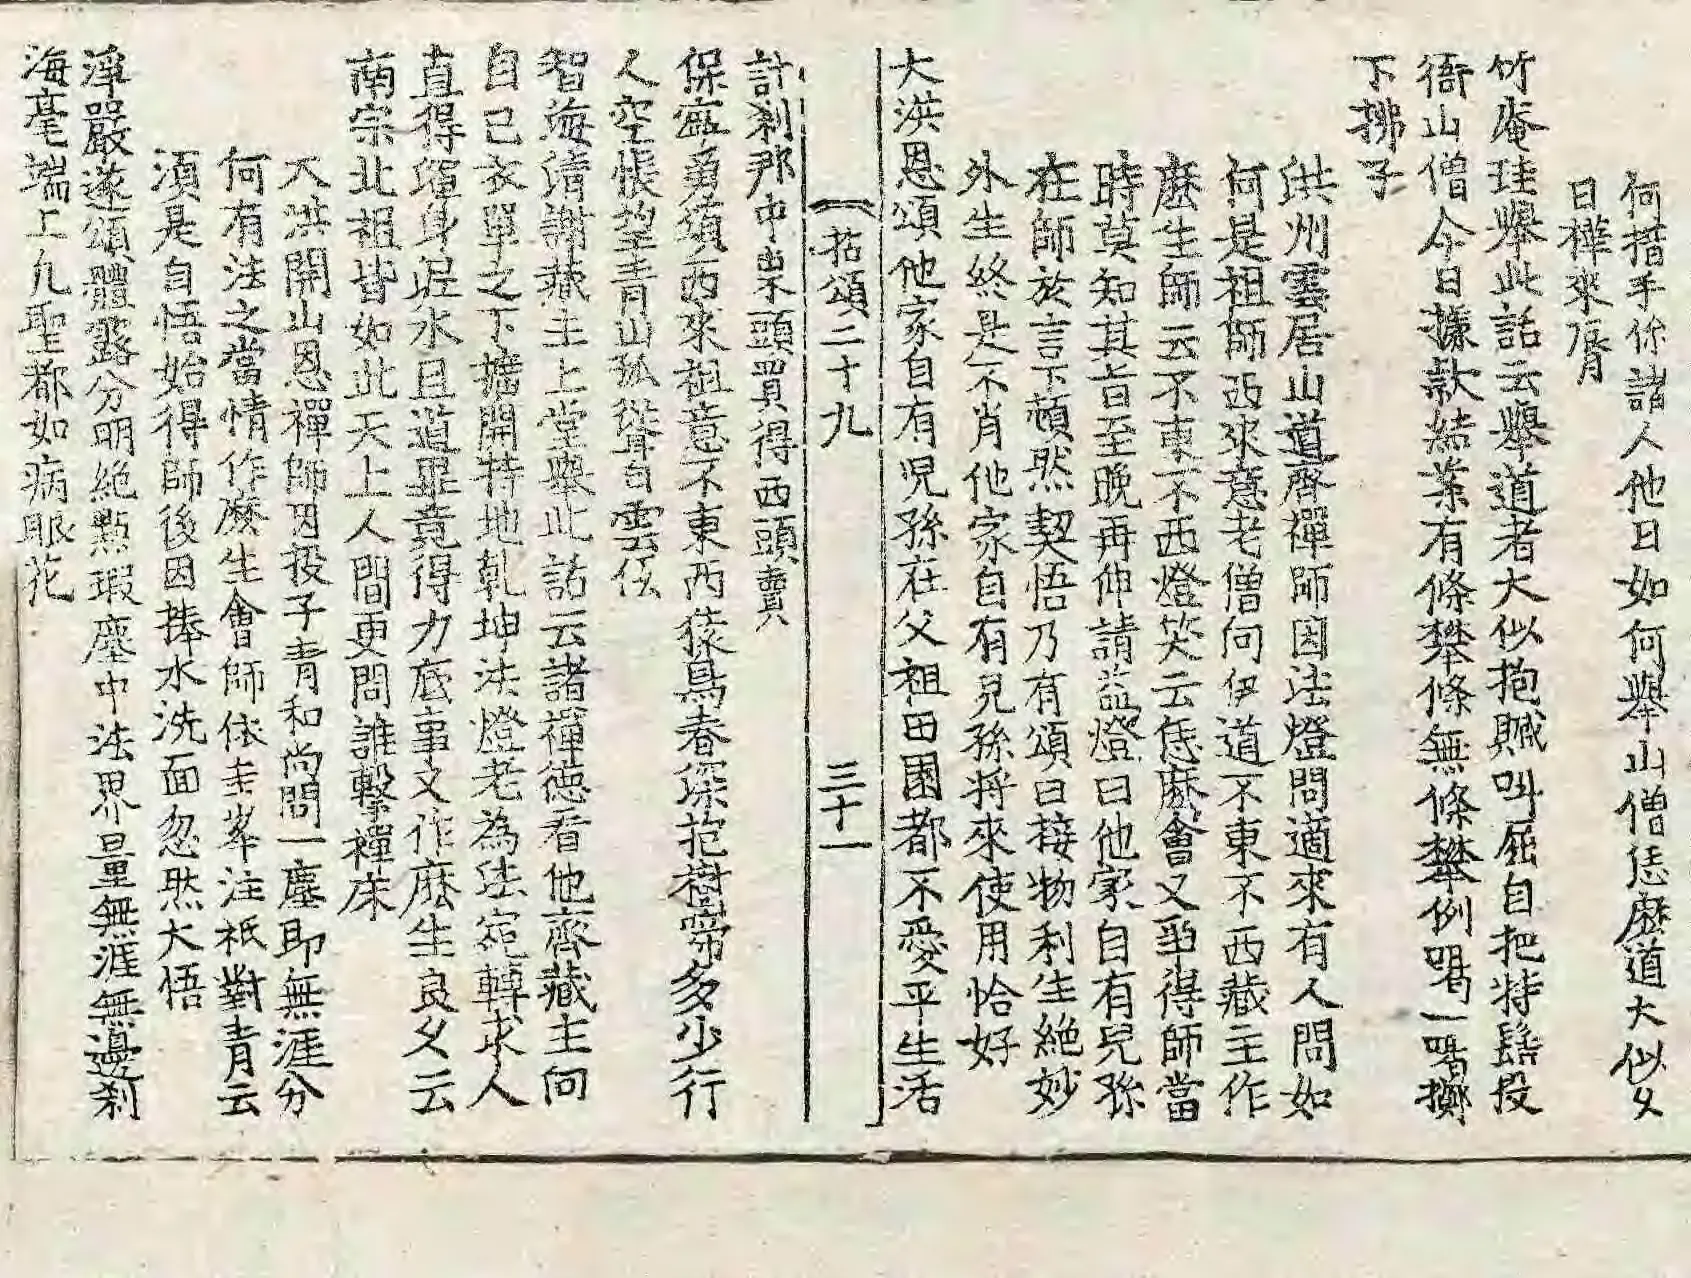 何措手你諸人他日如何舉山僧恁麽道大似乂
日樺來脣
竹庵珪舉此話云舉道者大似抱贓叫屈自把特髻投
衙山僧今日據款結案有條攀條無條攀例喝一喝擲
下拂子
洪州雲居山道齊禪師因法燈問適來有人問如
何是祖師西來意老僧向伊道不東不西藏主作
麽生師云不東不西燈笑云恁麽會又爭得師當
時莫知其旨至晚再伸請益燈曰他家自有兒孫
在師於言下頓然契悟乃有頌曰接物利生絶妙
外生終是不肖他家自有兒孫將來使用恰好
大洪恩頌他家自有兒孫在父祖田園都不愛平生活
拈頌二十九 三十一
計刹那中東頭買得西頭賣
保寧勇頌西來祖意不東西猿鳥春深抱樹啼多少行
人空悵望青山孤聳白雲低
智海淸謝藏主上堂舉此話云諸禪德看他齊藏主向
自己衣單之下擴開特地乾坤法燈老為法宛轉求人
直得渾身泥水且道畢竟得力底事又作麽生良久云
南宗北祖皆如此天上人間更問誰擊禪床
大洪開山恩禪師因投子青和尚問一塵即無涯分
何有法之當情作麽生會師依圭峯注祗對青云
須是自悟始得師後因捧水洗面忽然大悟
淨嚴遂頌體露分明絶點瑕塵中法界量無涯無邊刹
海毫端上凡聖都如病眼花